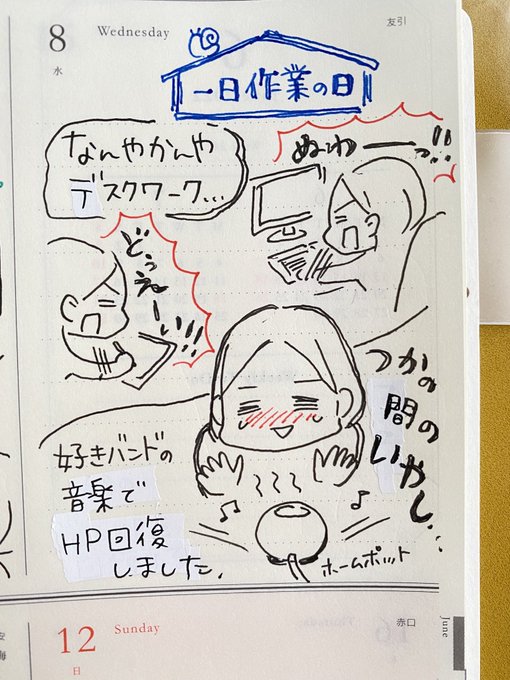 8 Wednesday 友引
水
一日作業の日
なんやかんや
デスクワーク...
ぬわーーっ!!
どぅえーい!!!
つかの
間の
いやし...
好きバンドの
音楽で
HP回復
しました。
ホームポット
12 Sunday 赤口
日
June